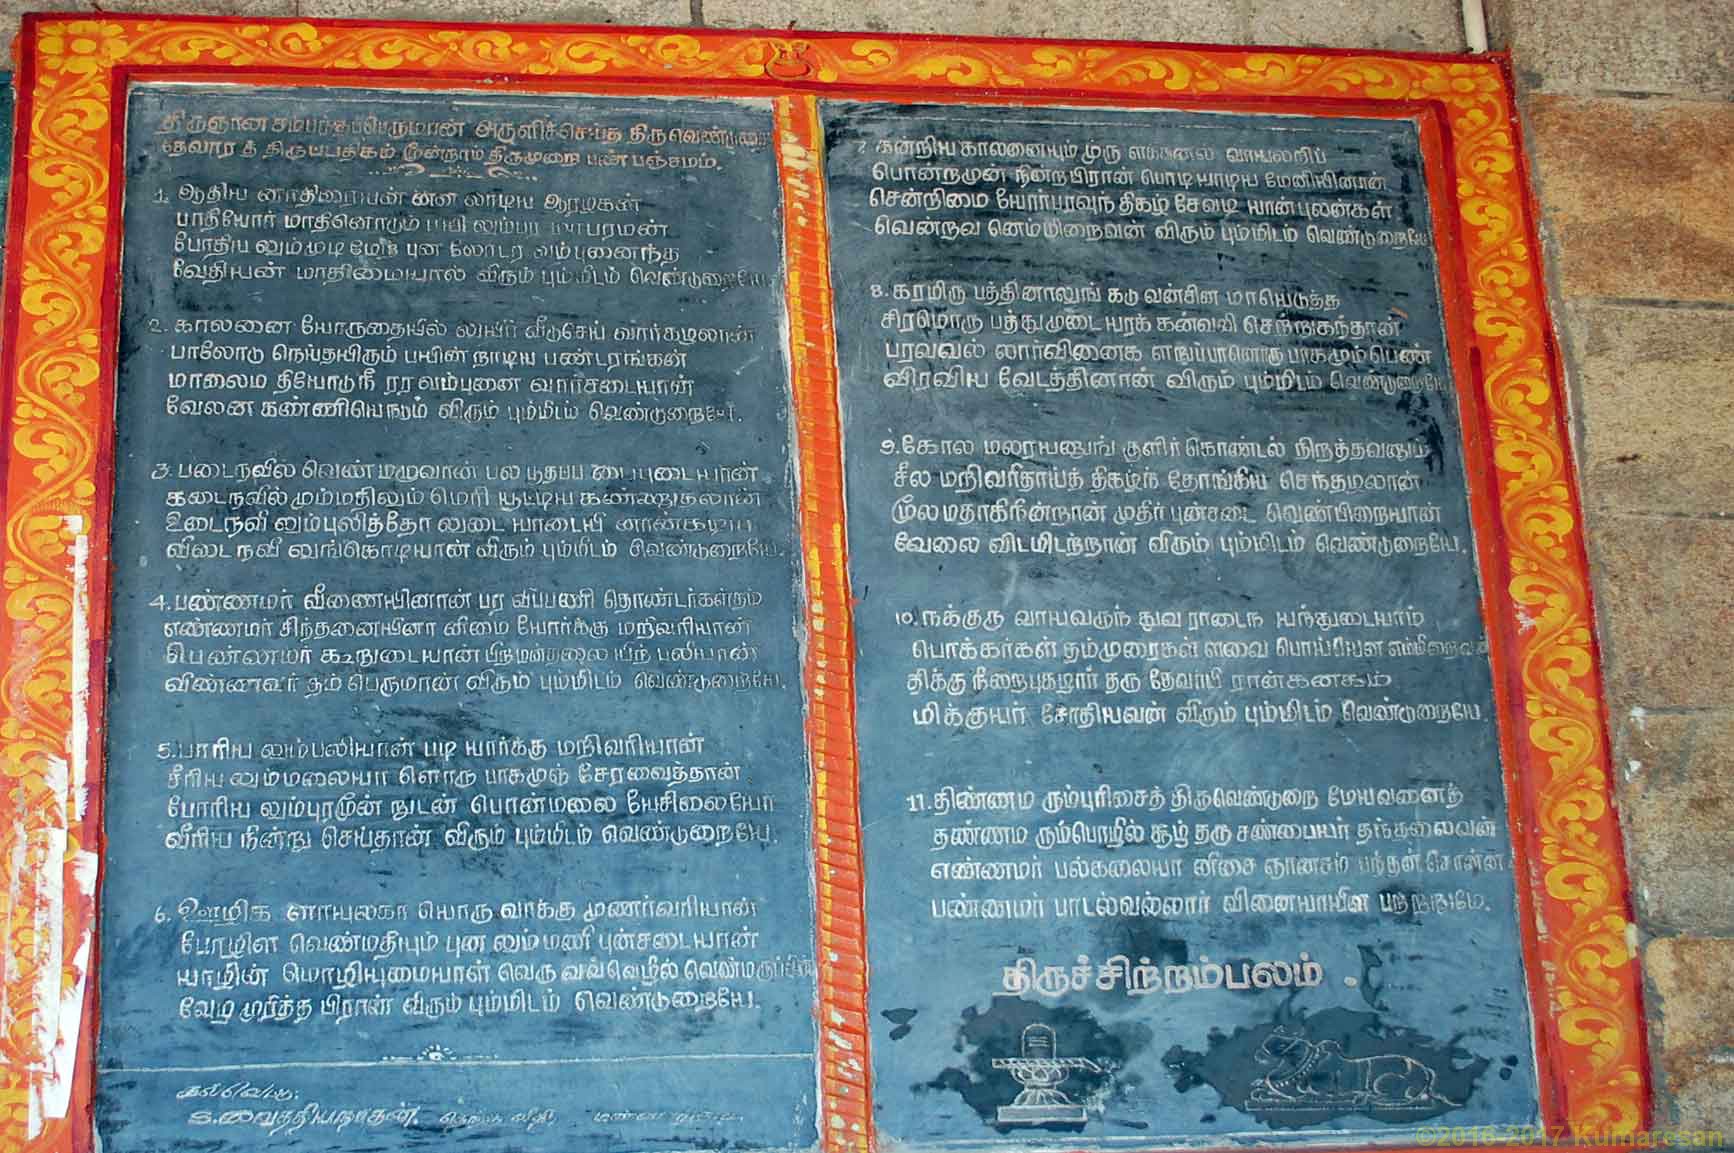 திருஞானசம்பந்தப்பெருமான் அருளிச்செய்த திருவெண்டுறை
தேவாரத் திருப்பதிகம் மூன்றாம் திருமுறை பண் பஞ்சமம்.
1. ஆதிய னாதிரையன் னன லாடிய ஆரழகன்
பாதியோர் மாதினொடும் பயி லும்பர மாபரமன்
போதிய லும்முடி மேற் புன லோடர வம்புனைந்த
வேதியன் மாதிமையால் விரும் பும்மிடம் வெண்டுறையே.
2. காலனை யோருதையில் லுயிர் வீடுசெய் வார்கழலான்
பாலோடு நெய்தயிரும் பயின் றாடிய பண்டரங்கன்
மாலைம தியோடுநீ ரர வம்புனை வார்சடையான்
வேலன கண்ணியொடும் விரும் பும்மிடம் வெண்டுறையே.
3. படைநவில் வெண் மழுவான் பல பூதப்ப டையுடையான்
கடைநவில் மும்மதிலும் மெரி யூட்டிய கண்ணுதலான்
உடைநவி லும்புலித்தோ லுடை யாடையி னான்கடிய
விடை நவி லுங்கொடியான் விரும் பும்மிடம் வெண்டுறையே.
4. பண்ணமர் வீணையினான் பர விப்பணி தொண்டர்கள்தம்
எண்ணமர் சிந்தனையினா னிமை யோர்க்கு மறிவரியான்
பெண்ணமர் கூறுடையான் பிரமன்தலை யிற் பலியான்
விண்ணவர் தம் பெருமான் விரும் பும்மிடம் வெண்டுறையே.
5. பாரிய லும்பலியான் படி யார்க்கு மறிவரியான்
சீரிய லும்மலையா ளொரு பாகமுஞ் சேரவைத்தான்
போரிய லும்புரமூன் றுடன் பொன்மலை யேசிலையோ
வீரிய நின்று செய்தான் விரும் பும்மிடம் வெண்டுறையே.
6. ஊழிக ளாயுலகா யொரு வர்க்கு முணர்வரியான்
போழிள வெண்மதியும் புன லும் மணி புன்சடையான்
யாழின் மொழியுமையாள் வெரு வவ்வெழில் வெண்மருப்பின்
வேழ முரித்த பிரான் விரும் பும்மிடம் வெண்டுறையே.
கல்வெட்டு:
S.வைத்தியநாதன்.
7. கன்றிய காலனையும் முரு ளக்கனல் வாயலறிப்
பொன்றமுன் நின்றபிரான் பொடியாடிய மேனியினான்
சென்றிமை யோர்பரவுந் திகழ் சேவடி யான்புலன்கள்
வென்றவ னெம்மிறைவன் விரும் பும்மிடம் வெண்டுறையே
8. கரமிரு பத்தினாலுங் கடு வன்சின மாயெடுத்த
சிரமொரு பத்துமுடை யரக் கன்வலி செற்றுகந்தான்
பரவவல் லார்வினைக ளறுப்பானொரு பாகமும்பெண்
விரவிய வேடத்தினான் விரும் பும்மிடம் வெண்டுறையே
9. கோல மலரயனுங் குளிர் கொண்டல் நிறத்தவனும்
சீல மறிவரிதாய்த் திகழ்ந் தோங்கிய செந்தழலான்
மூலமதாகிநின்றான் முதிர் புன்சடை வெண்பிறையான்
வேலை விடமிடற்றான் விரும் பும்மிடம் வெண்டுறையே.
10. நக்குரு வாயவருந் துவ ராடைந யந்துடையாம்
பொக்கர்கள் தம்முரைகள் ளவை பொய்யென எம்மிறைவன்
திக்கு நிறைபுகழார் தரு தேவர்பி ரான்கனகம்
மிக்குயர் சோதியவன் விரும் பும்மிடம் வெண்டுறையே.
11. திண்ணம ரும்புரிசைத் திருவெண்டுறை மேயவனைத்
தண்ணம ரும்பொழில் சூழ் தரு சண்பையர் தந்தலைவன்
எண்ணமர் பல்கலையா னிசை ஞானசம் பந்தன் சொன்ன
பண்ணமர் பாடல்வல்லார் வினையாயின பற்றறுமே.
திருச்சிற்றம்பலம்.
©2016-2017 Kumaresan